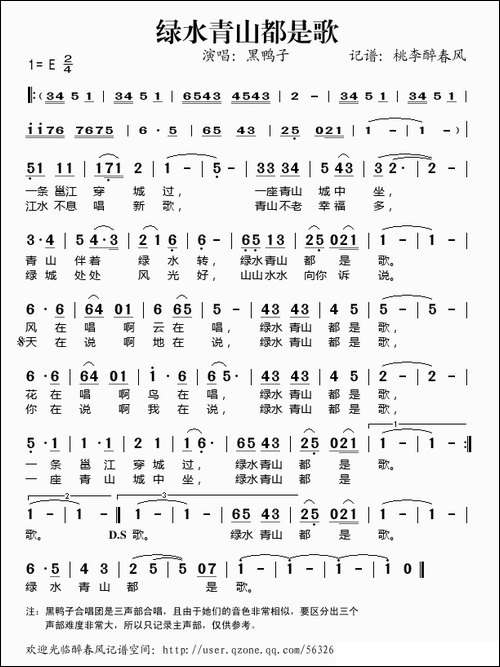 绿水青山都是歌
演唱：黑鸭子 记谱：桃李醉春风
1= E 2/4
‖:(34 51 | 34 51 | 6543 4543 | 2 - | 34 51 | 34 51 |
ii76 7675 | 6·5 | 65 43 | 25 021 | 1 - | 1 -) |
51 11 | 1171 2 | 1 - | 5 - | 33 34 | 5 43 | 3 2 |
一条邕江 穿 城 过， 一座青山 城中 坐，
江水不息 唱 新 歌， 青山不老 幸福 多，
3·4 | 5 4·3 | 2 1 | 6 - | 65 13 | 25 021 | 1 - | 1 - |
青山 伴着 绿 水 转， 绿水青山 都 是 歌。
绿城 处处 风 光 好， 山山水水 向你 诉 说。
6·6 | 64 01 | 6 65· | 5 - | 43 43 | 43 21 | 1 - | 1 - |
风在唱 啊云在 唱， 绿水 青山 都 是 歌，
※天在说 啊地在 说， 绿水 青山 都 是 歌，
6·6 | 64 01 | i·6 | 65· | 43 43 | 4 5 | 2 - | 2 - |
花在唱 啊鸟在 唱， 绿水 青山 都 是 歌，
你在说 啊我在 说， 绿水 青山 都 是 歌，
5·1 | 1·1 | 2 1 | 16· | 65 43 | 25 021 | 1 - | 1 - :‖
一条 邕江 穿城 过， 绿水青山 都 是 歌。
一座 青山 城中 坐， 绿水青山 都 是 歌。
1 - | 1 - ‖ 1 - | 1 - | 65 43 | 25 021 | 1 - | 1 - |
歌。 D.S 歌。 绿水青山 都 是 歌。
6·5 | 4 3 | 2 25 | 5 07 | 1 - | 1 - | 1 - | 1 0 ‖
绿水 青山 都 是 歌。
注：黑鸭子合唱团是三声部合唱，且由于她们的音色非常相似，要区分出三个
声部难度非常大，所以只记录主声部，仅供参考.
欢迎光临醉春风记谱空间：http://user.qzone.qq.com/56326